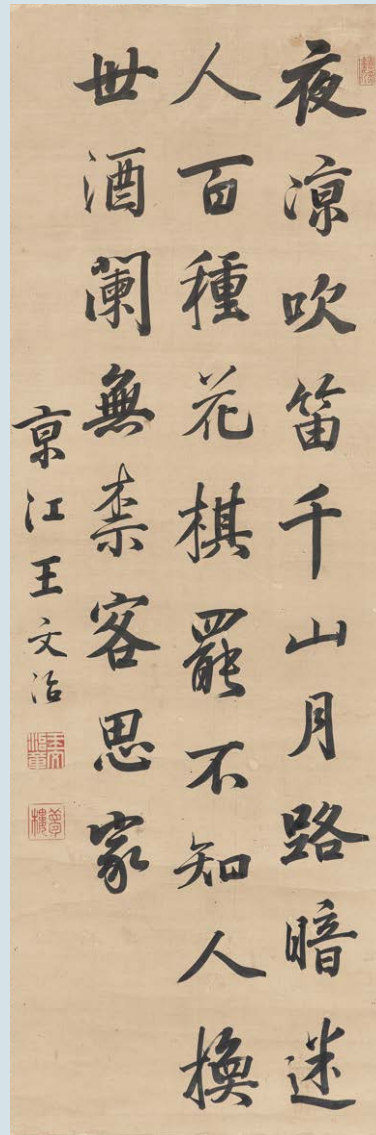 夜涼吹笛千山月路暗迷
人百種花棋罷不知人換
世酒闌無柰客思家
京江王文治
王文治章
夢樓